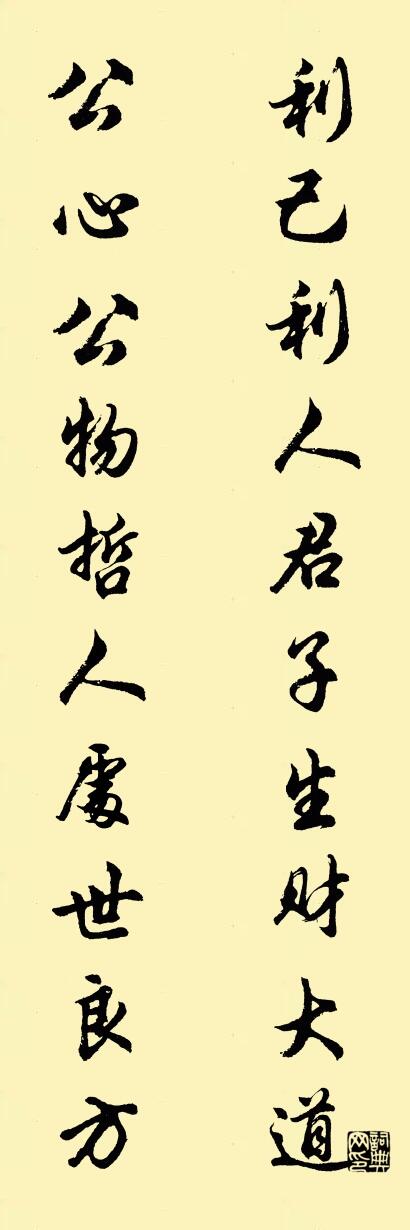 利己利人君子生财大道
公心公物哲人處世良方
詞典网印